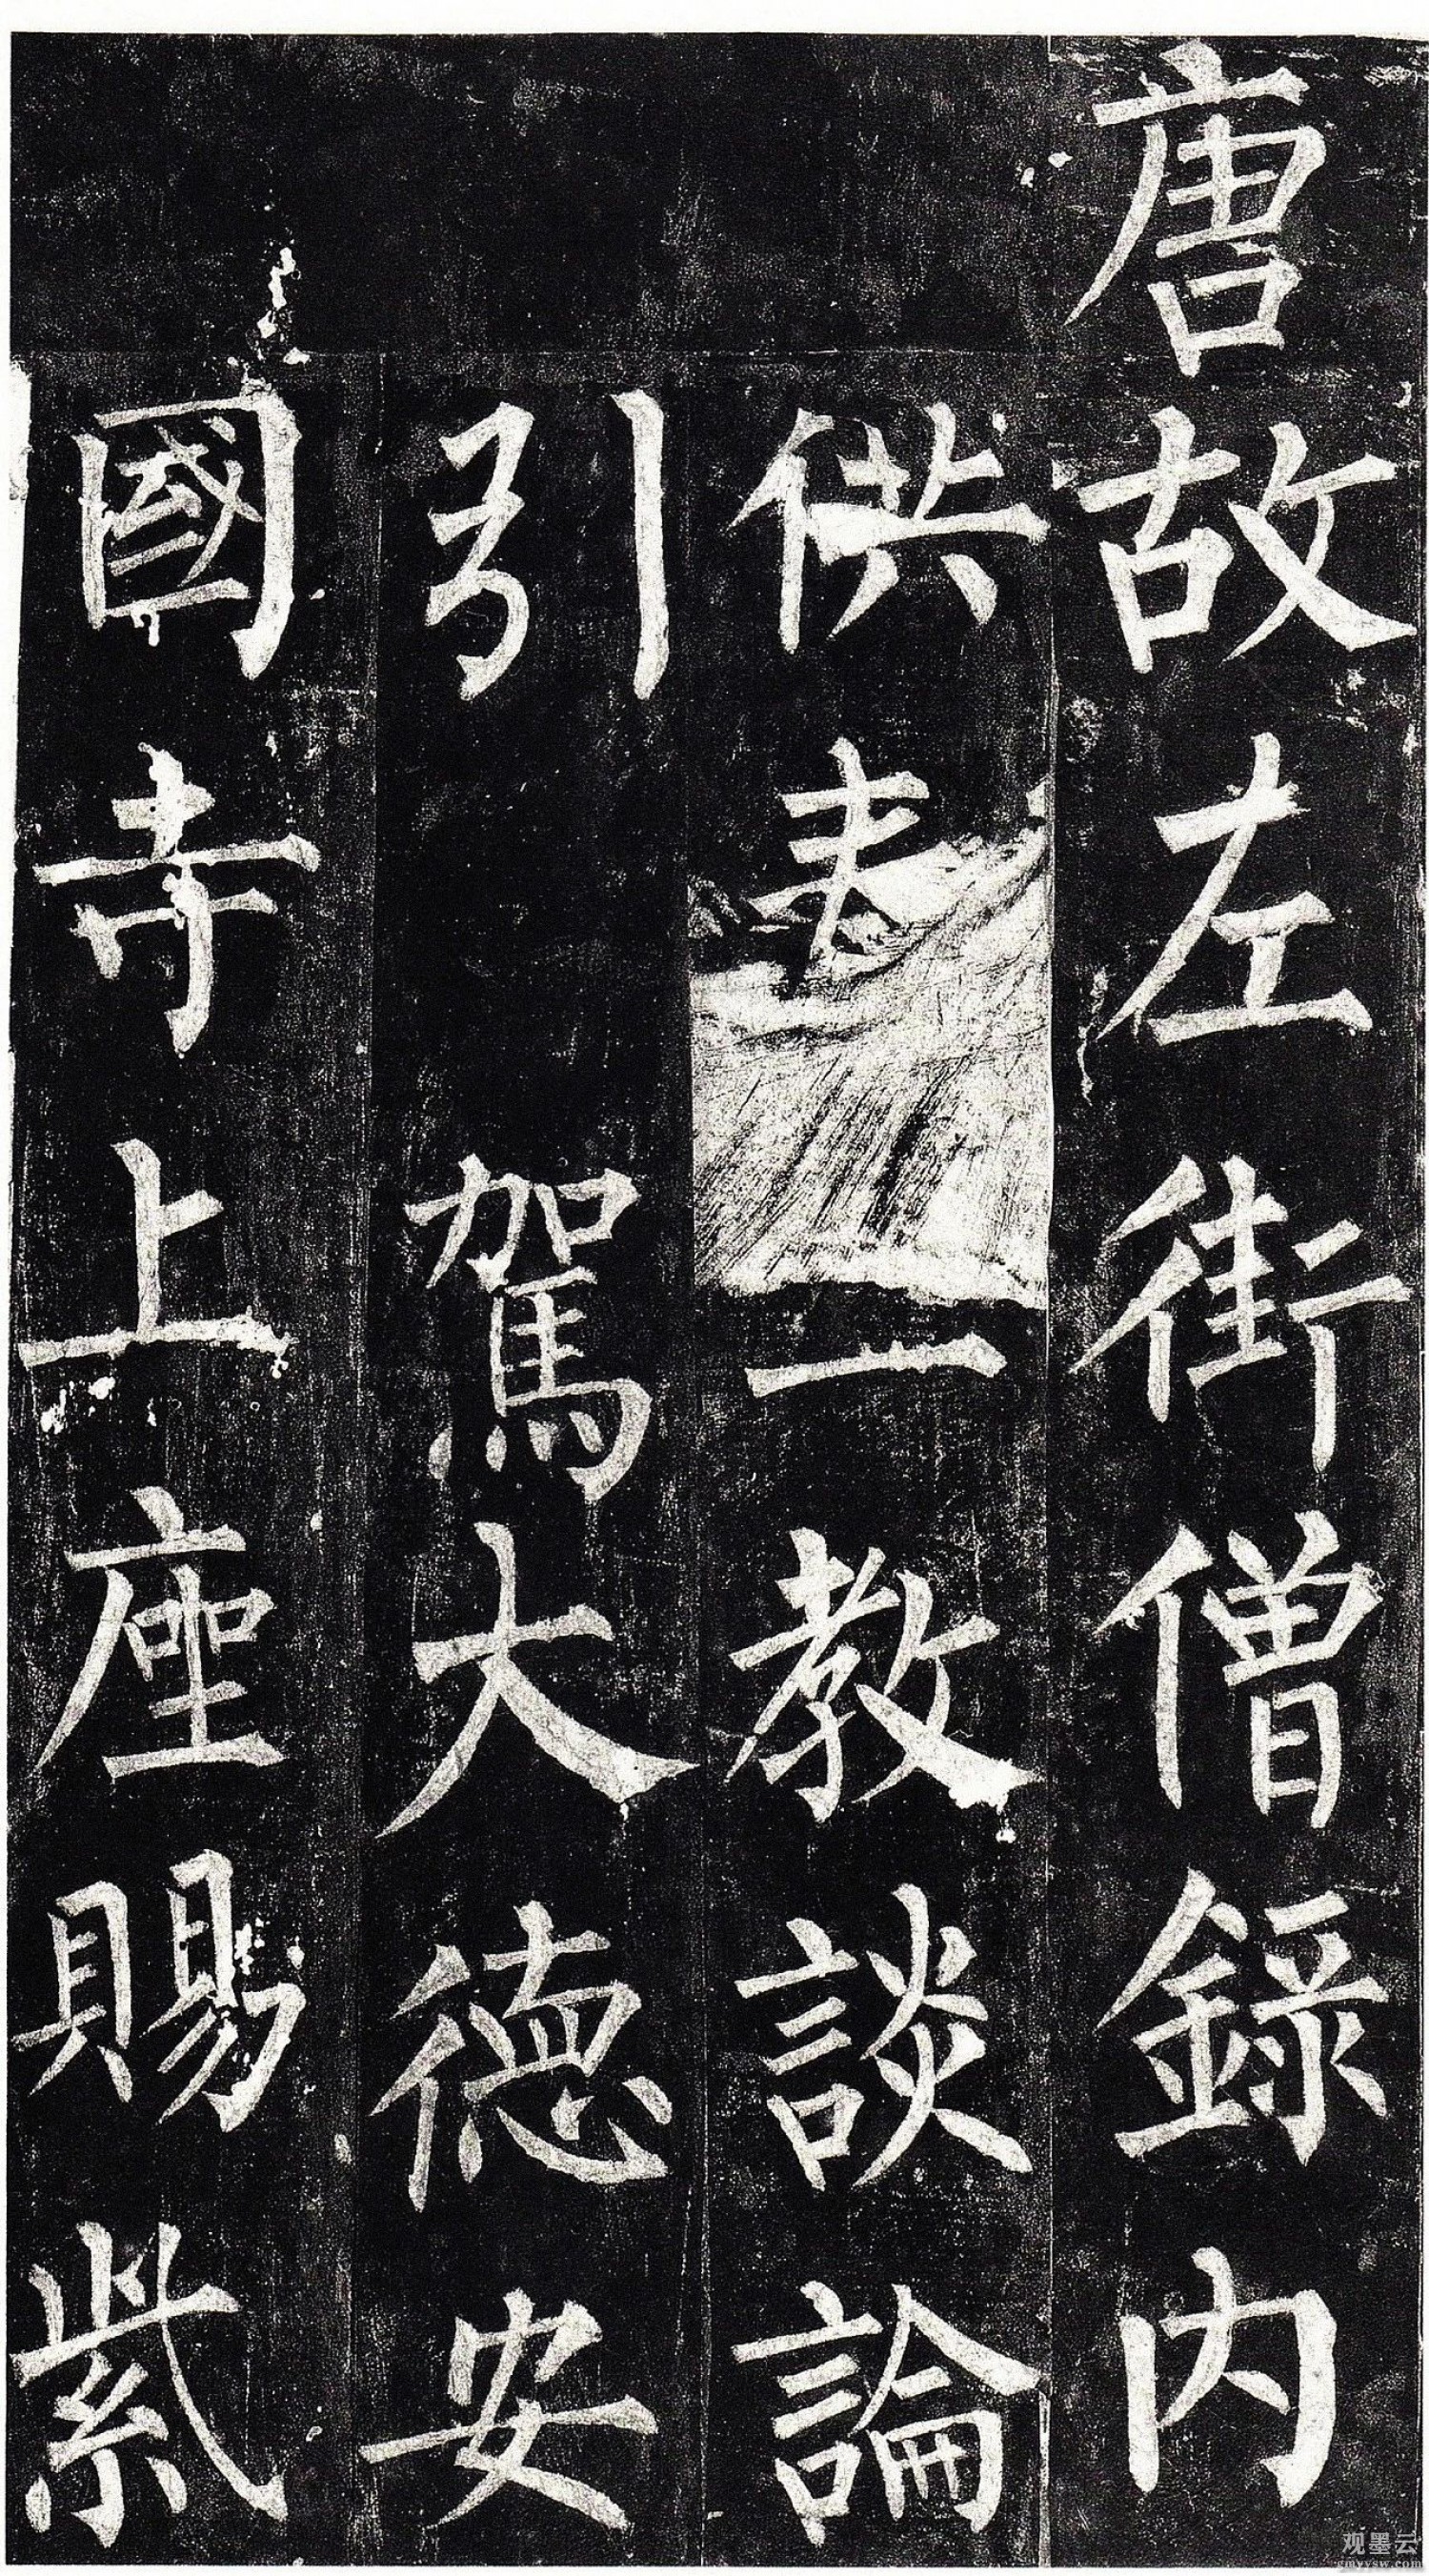 唐故左街僧錄內
供奉三教談論
引駕大德安
國寺上座賜紫
观墨云
gmyysw.com